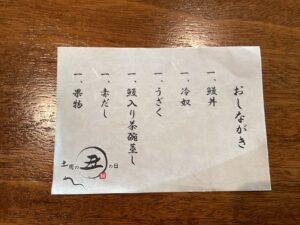 おしながき
一、鰻丼
一、冷奴
一、うざく
一、鰻入り茶碗蒸し
一、赤だし
一、果物
土用の丑の日